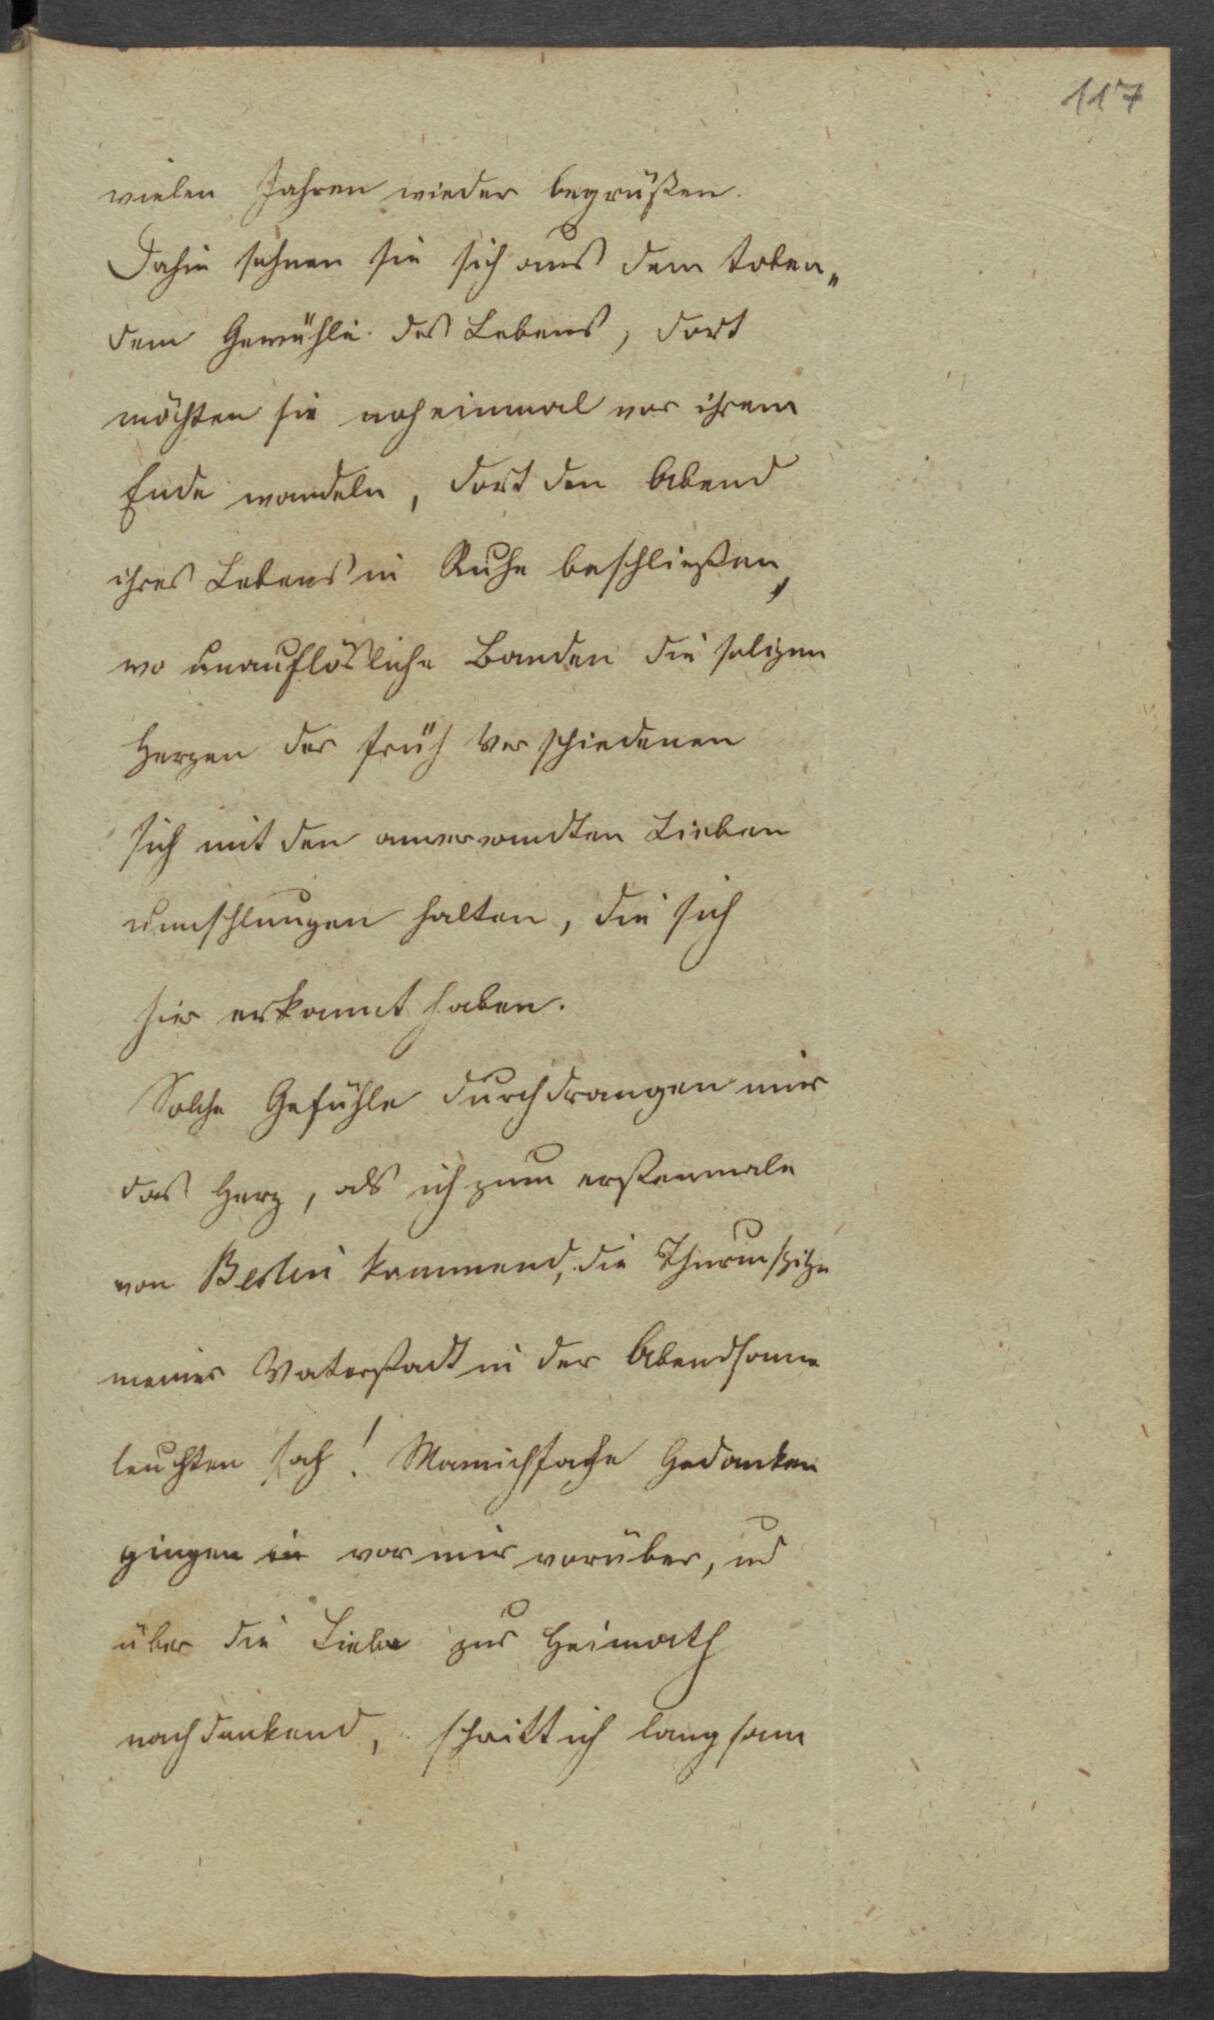 117
vielen Jahren wieder begrüßen.
Dahin sehnen sie sich aus dem toben„
dem Gewühle des Lebens, dort
möchten sie noh einmal vor ihrem
Ende wandeln, dort den Abend
ihres Lebens in Ruhe beschließen,
wo unauflösliche Banden die seligen
Herzen der früh Verschiedenen
sich mit den anverwandten Lieben
umschlungen halten, die sich
hier erkannt haben.
Solche Gefühle durchdrangen mir
das Herz, als ich zum erstenmale
von Berlin kommend, die Thurmspitze
meiner Vaterstadt in der Abendsonne
leuchten sah! Mannichfache Gedanken
gingen in vor mir vorüber, und
über die Liebe zur Heimath
nachdenkend, schritt ich langsam